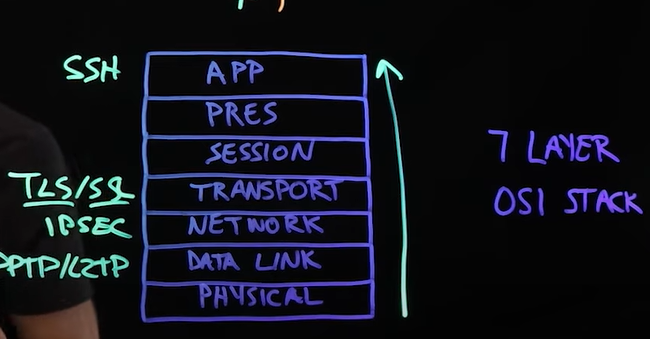 SSH APP
PRES
SESSION
TLS/SSL TRANSPORT
IPSEC NETWORK
PPTP/L2TP DATA LINK
PHYSICAL
7 LAYER
OSI STACK